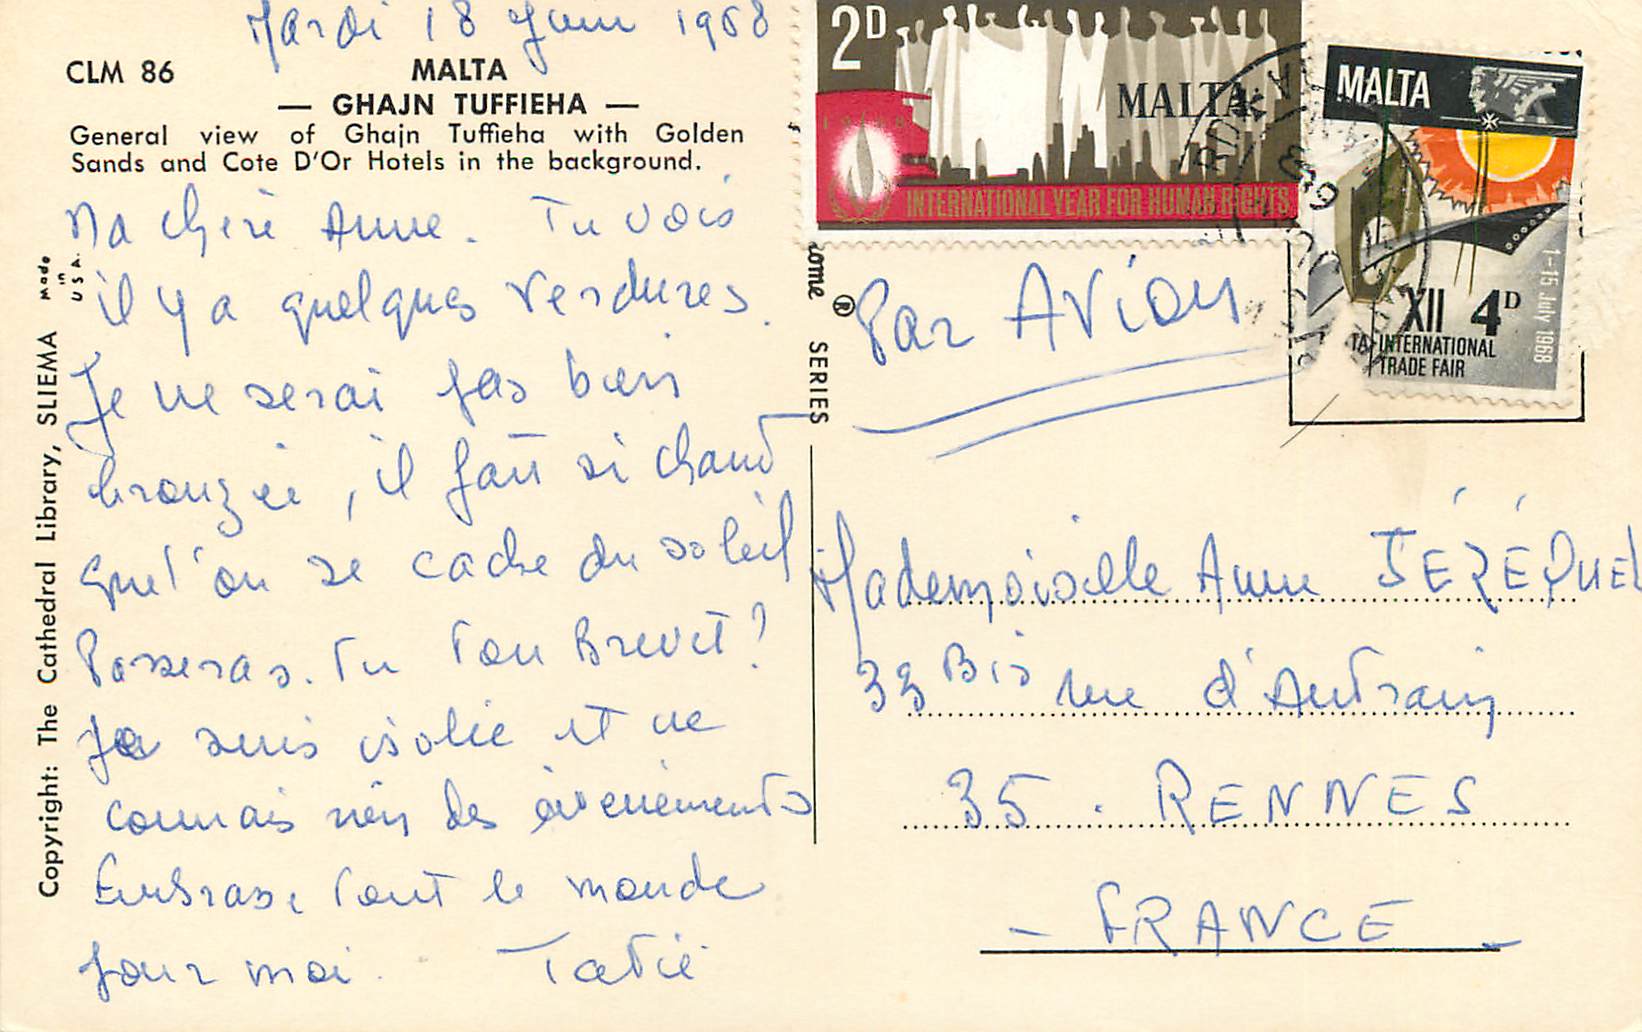 Mardi 18 Juin 1968
CLM 86
MALTA
— GHAJN TUFFIEHA —
General view of Ghajn Tuffieha with Golden
Sands and Cote D'Or Hotels in the background.
Ma chère Anne. Tu vois
il y a quelques verdures.
Je ne serai pas bien
bronzée, il fait si chaud
que l'on se cache du soleil
Passeras-tu ton Brevet?
Je suis isolée et ne
connais rien des évènements
Embrasse tout le monde
pour moi. Tatie
Made
in
U S A.
Copyright: The Cathedral Library, SLIEMA
ome ® SERIES
2D
MALTA
1968
INTERNATIONAL YEAR FOR HUMAN RIGHTS
MALTA
1-15 July 1968
XII 4D
TA INTERNATIONAL
TRADE FAIR
Par Avion
Mademoiselle Anne JÉZÉQUEL
33 Bis rue d'Antrain
35. RENNES
- FRANCE -